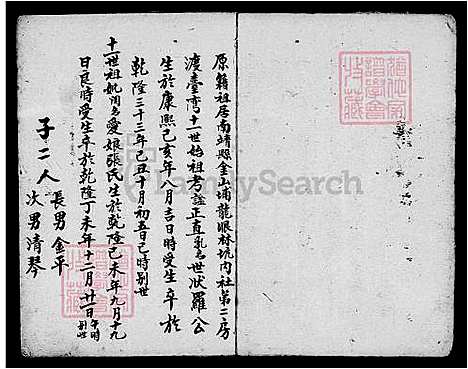 原籍祖居南靖縣金山埔龍眼林坑內社第二房
渡臺灣十一世始祖考諡正直乳名世狀羅公
生於康熙己亥年八月吉日時受生卒於
乾隆三十三年己丑十月初五日己時別世
十一世祖妣閨名愛娘張氏生於乾隆己未年九月十九
日良時受生卒於乾隆丁未年十二月廿一日午時別世
子二人 長男金平
次男清琴
FamilySearch